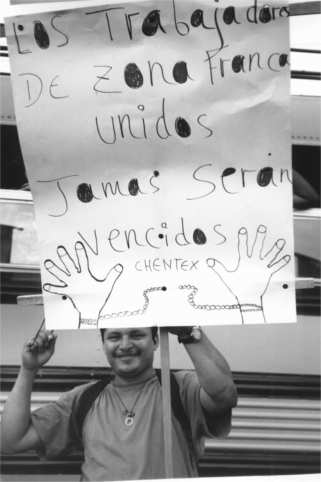 Los Trabajadores
DE Zona Franca
unidos
Jamas Serán
Vencidos
CHENTEX